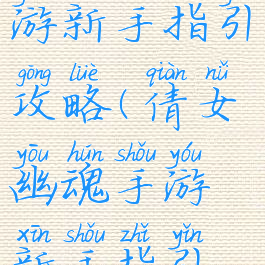 游新手指引
gōng lüè qiàn nǚ
攻略(倩女
yōu hún shǒu yóu
幽魂手游
xīn shǒu zhǐ yǐn
新手指引